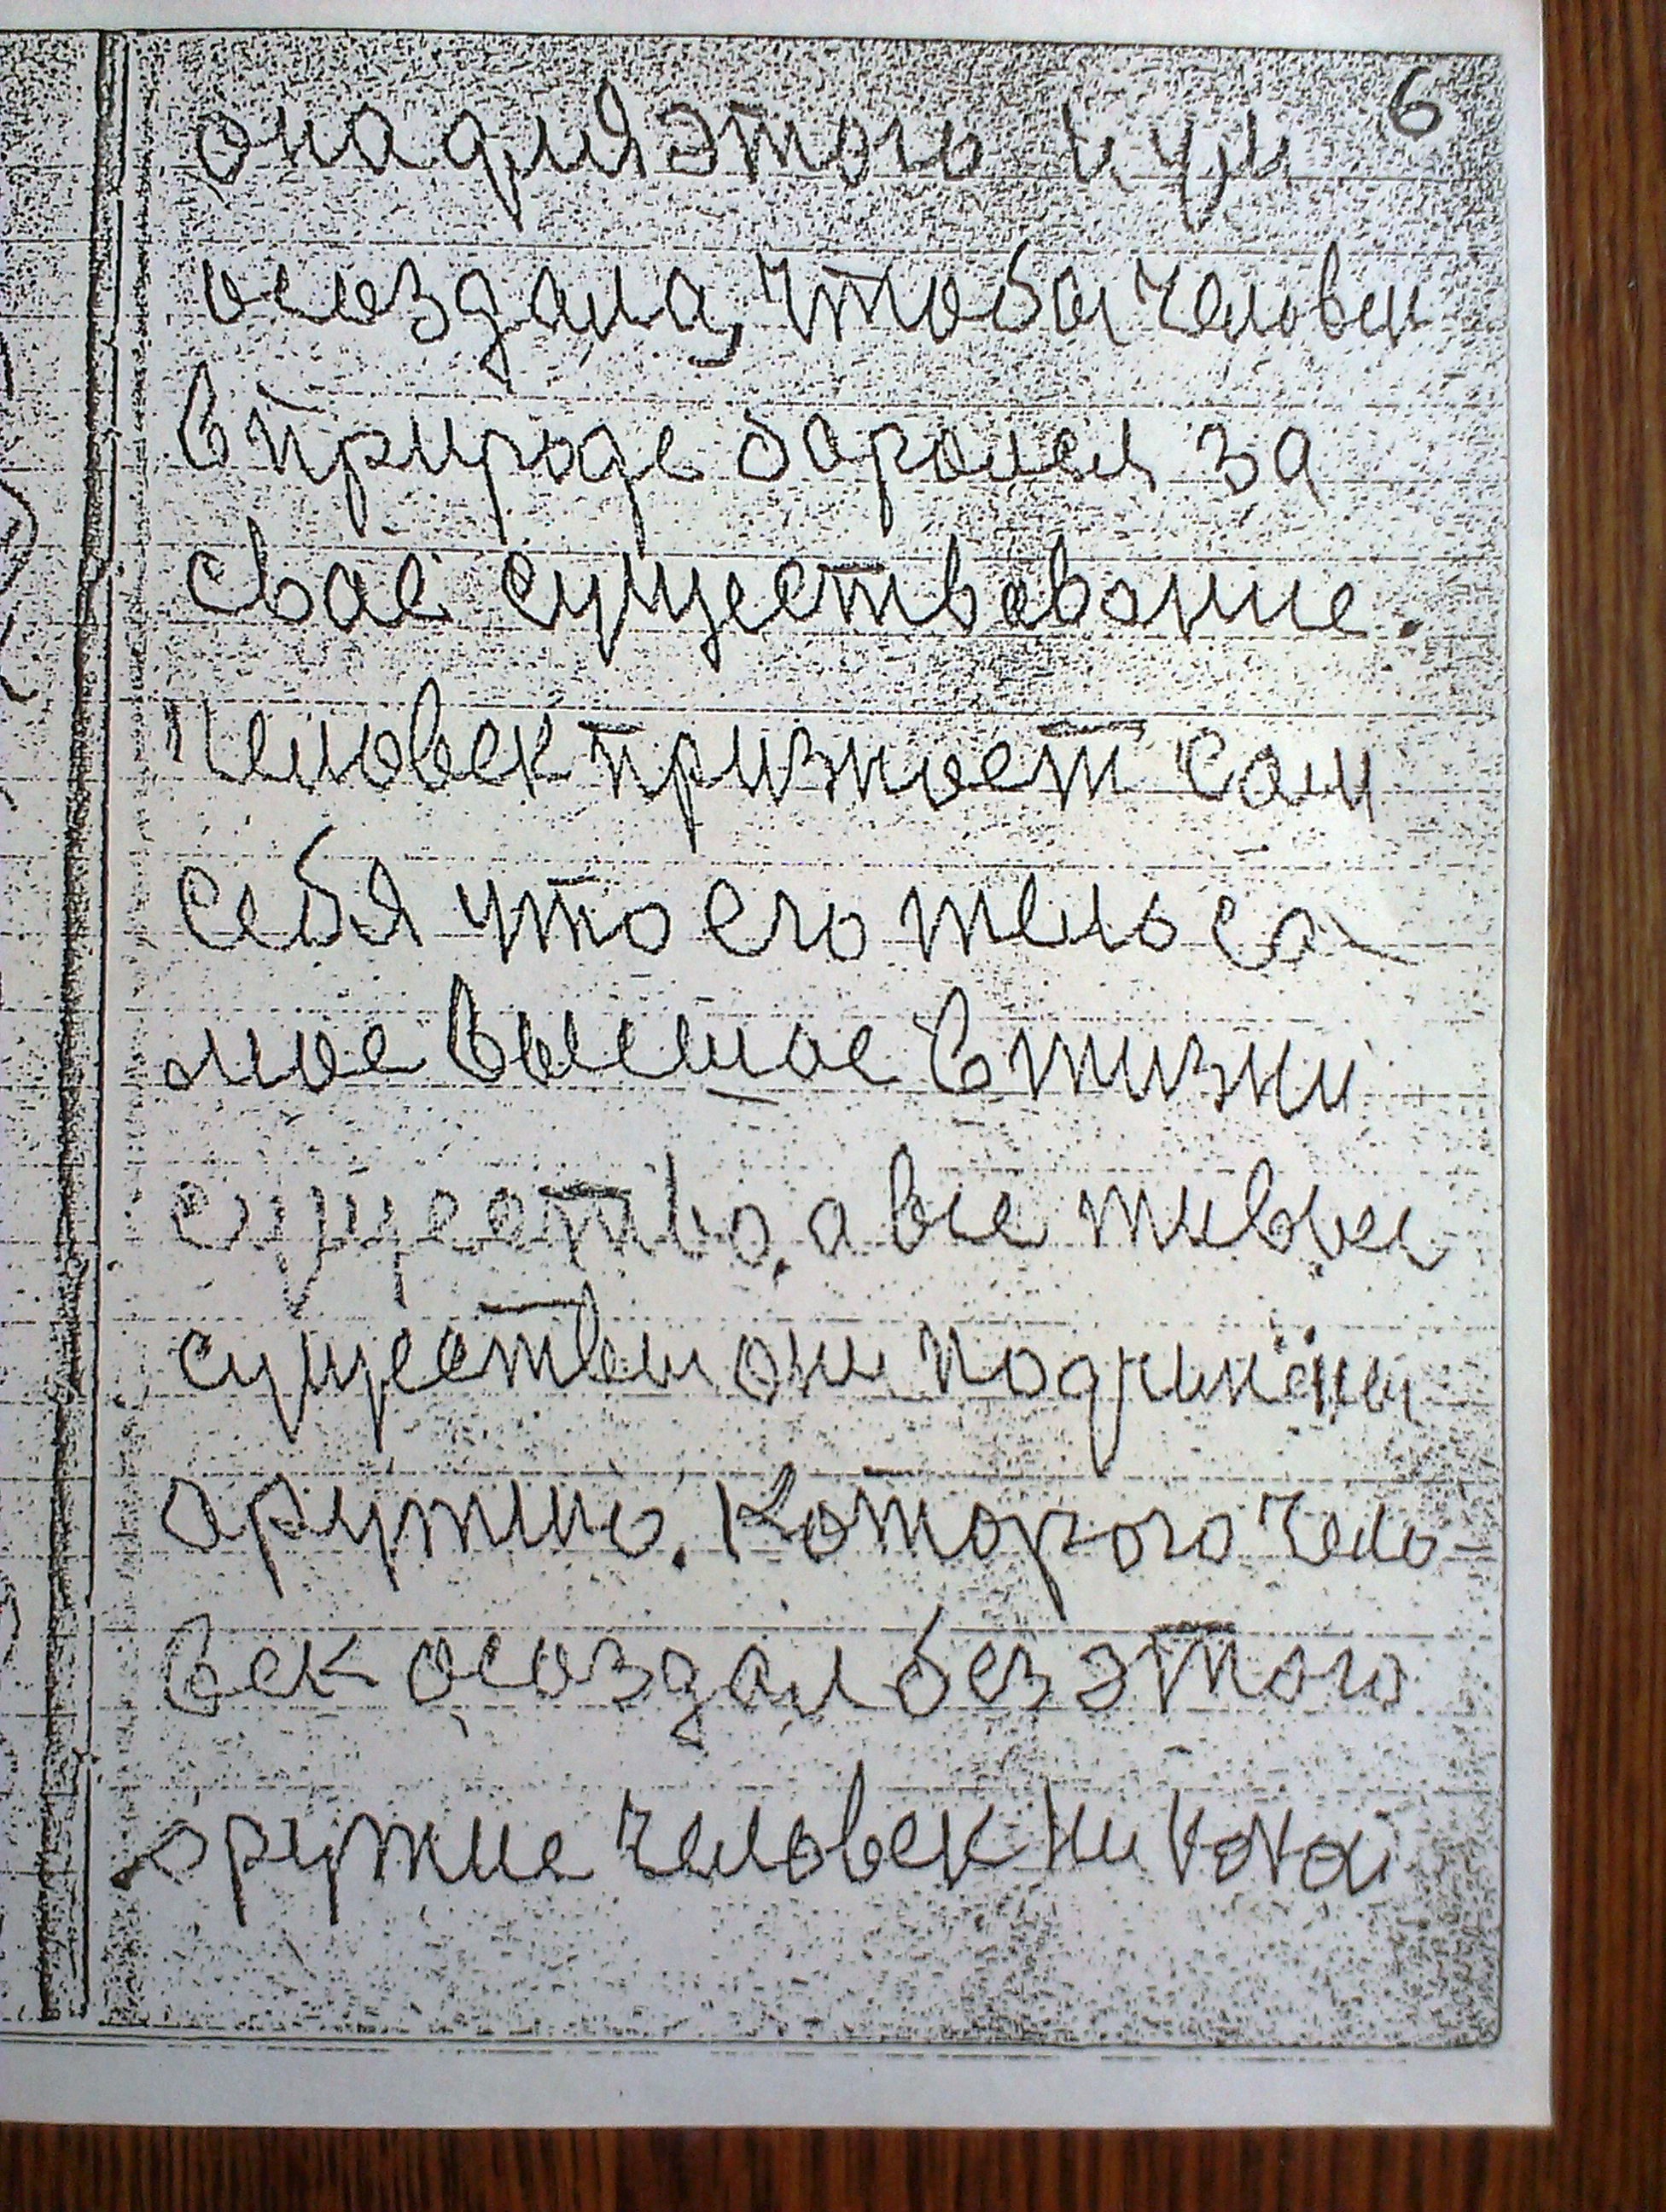 6
она для этого и узи
осоздала, чтобы человек
в природе боролся за
свае существование.
Человек признает сам
себя что его тело са-
мое высшае в жизни
существо, а все живые
существы они подчинёны
аружию. Которого чело-
век осоздал без этого
оружие человек никакой